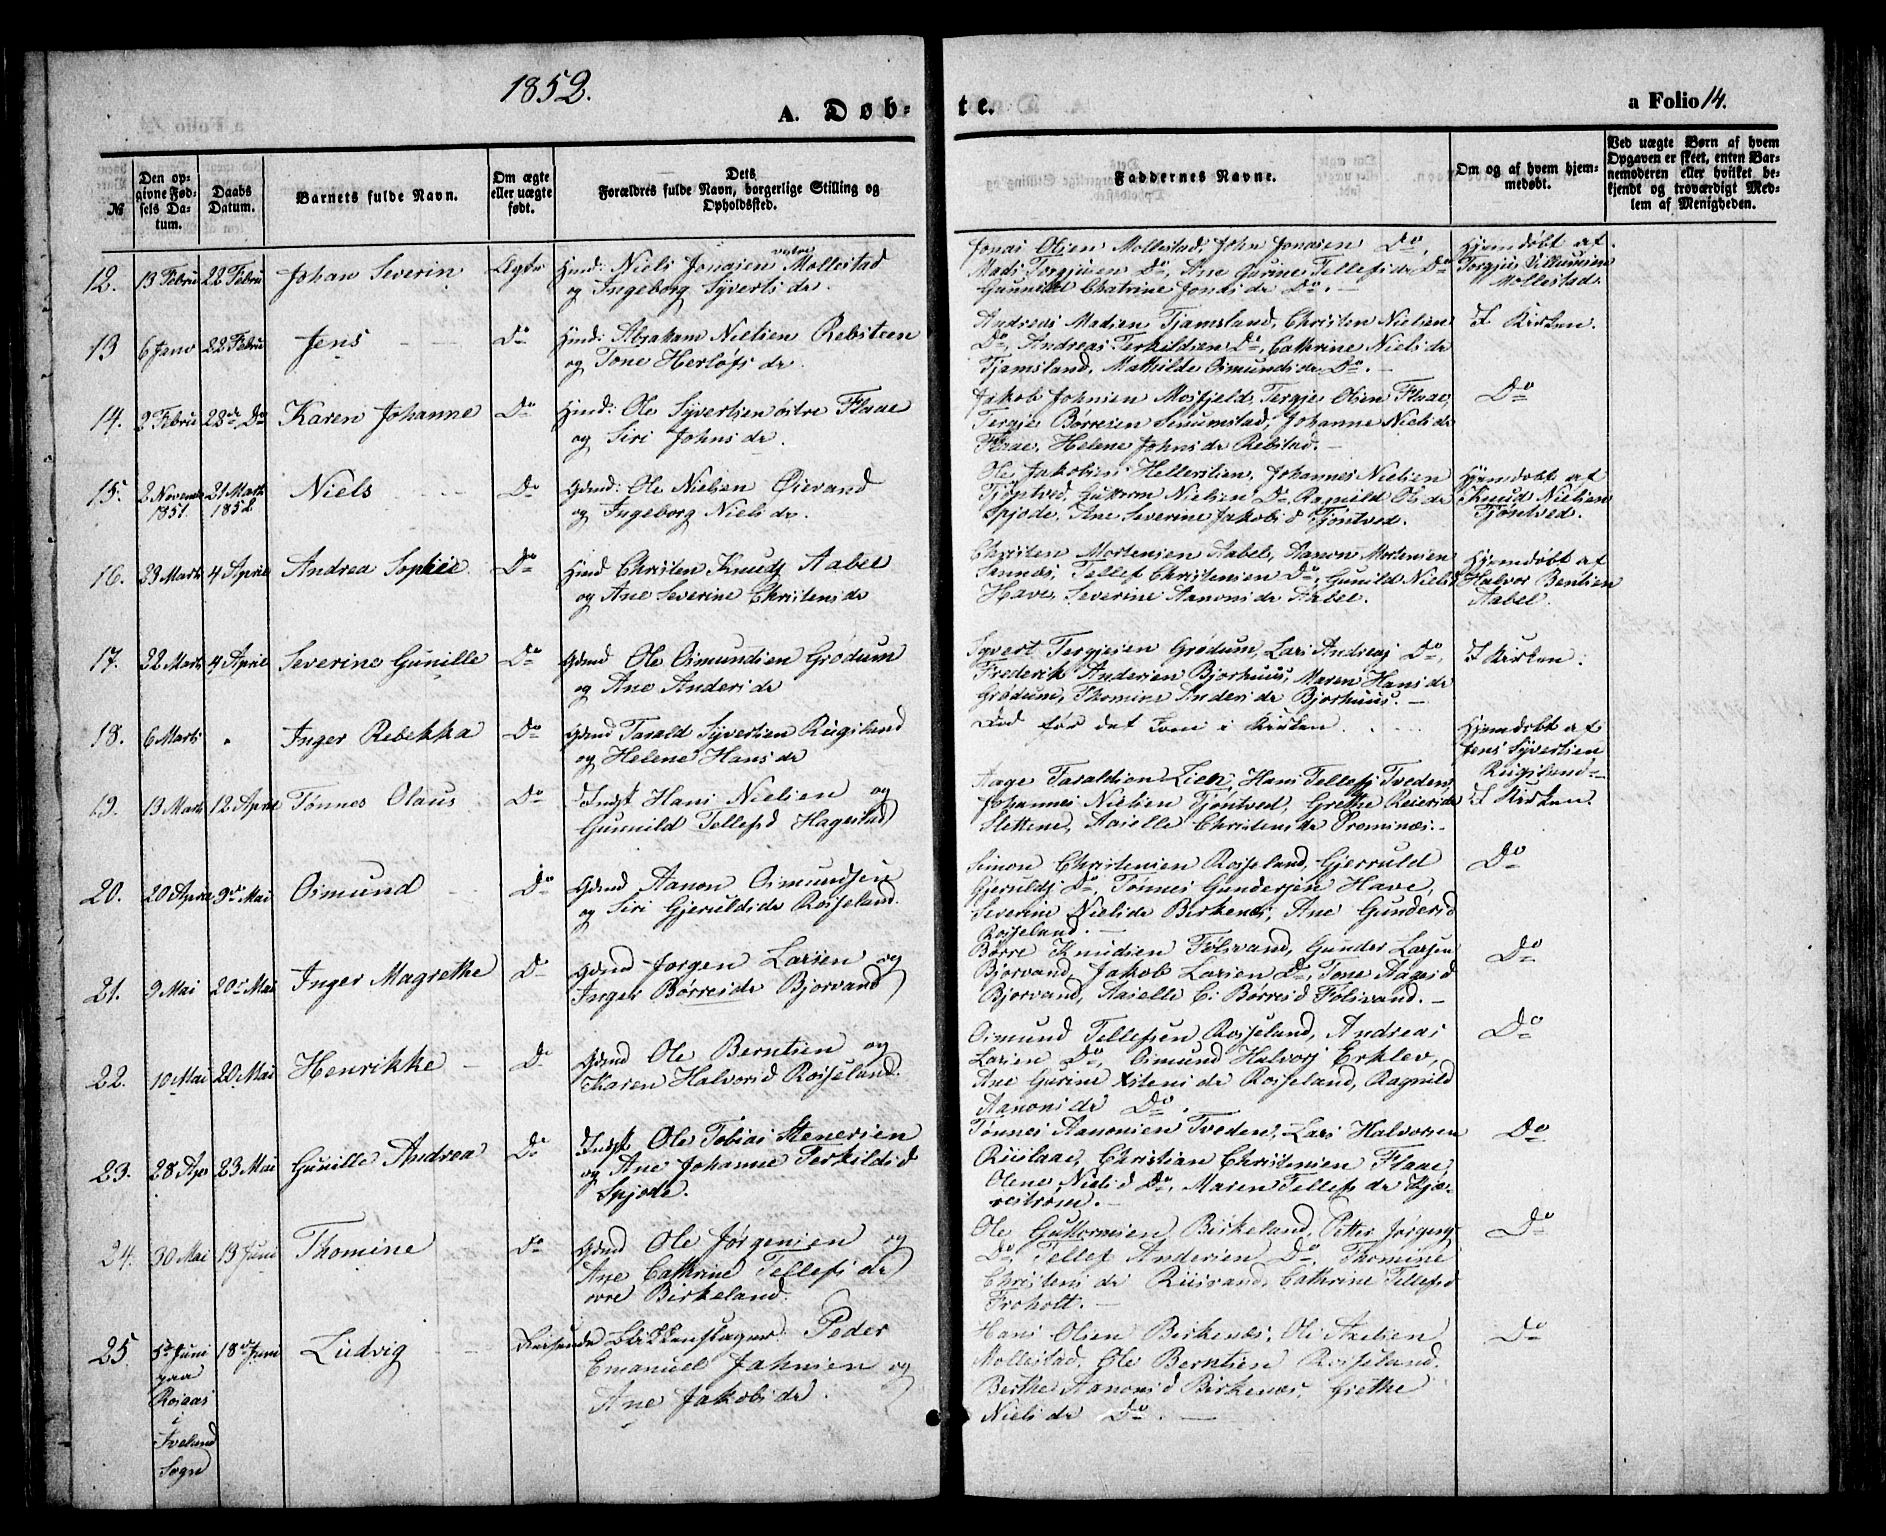 1852.
A. Døb-
te.
a Folio 14.
№
Den op-
givne Fød-
sels Da-
tum.
Daabs
Datum.
Barnets fulde Navn.
Om ægte
eller uægte
født.
Dets
Forældres fulde Navn, borgerlige Stilling og
Opholdssted.
Faddernes Navne.
Om og af hvem hjem-
medøbt.
Ved uægte Børn af hvem
Opgaven er skeet, enten Bar-
nemoderen eller hvilket be-
kjendt og troværdigt Med-
lem af Menigheden.
12. 13 Febru 22 Febru Johan Severin Ægte
Hmd: Niels Jonasen vestre Mollestad
og Ingeborg Syvertsdr.
Jonas Olsen Mollestad, John Jonasen Do,
Mads Torgjusen Do, Ane Gurine Tellefsdr Do
Gunnild Chatrine Jonasdr Do. —
Hjemdøbt af
Torgjus Villumsen
Mollestad.
13 6 Janv 22 Febru Jens Do
Hmd: Abraham Nielsen Rebsteen
og Tone Herløfsdr.
Andreas Madsen Tjamsland, Christen Nielsen
Do, Andreas Terkildsen Do, Cathrine Nielsdr
Tjamsland, Mathilde Osmundsdr Do. —
I Kirken.
14. 2 Febru 28de Do Karen Johanne Do
Hmd: Ole Syvertsen østre Flaae
og Siri Johnsdr.
Jakob Johnsen Mosfjeld, Tergje Olsen Flaae,
Tergje Børresen Senumstad, Johanne Nielsdr
Flaae, Helene Johnsdr Rebstad. —
Do
15. 2 Novemb 1851. 21 Marts 1852 Niels Do
Gdmd: Ole Nielsen Øievand
og Ingeborg Nielsdr.
Ole Jakobsen Hellerslien, Johannes Nielsen
Tjøntved, Guttorm Nielsen Do, Ragnild Olsdr
Spjode, Ane Severine Jakobsd Tjøntved.
Hjemdøbt af
Knud Nielsen
Tjøntved.
16. 23 Marts 4 April Andrea Sophie Do
Hmd Christen Knuds Aabel
og Ane Severine Christensdr
Christen Mortensen Aabel, Aanon Mortensen
Sannes, Tellef Christensen Do, Gunild Nielsd
Have, Severine Aanonsdr Aabel.
Hjemdøbt af
Halvor Bentsen
Aabel.
17. 22 Marts 4 April Severine Gunille Do
Gdmd Ole Osmundsen Grødum
og Ane Andersdr
Syvert Tergjesen Grødum, Lars Andreas Do,
Frederik Andersen Bjorhuus, Maren Hansdr
Grødum, Thomine Andersdr Bjorhuus. —
I Kirken.
18. 6 Marts " Inger Rebekka Do
Gdmd Tarald Syvertsen Rugsland
og Helene Hansdr
Død før det kom i Kirken
Hjemdøbt af
Jens Syvertsen
Rugsland
19. 13 Marts 12 April Tønnes Olaus Do
Indst Hans Nielsen og
Gunnild Tellefsd Hagestad
Aage Taraldsen Lien, Hans Tellefs Tveden,
Johannes Nielsen Tjøntved, Grethe Reiersdr
Slettene, Aasille Christensdr Prominæs. —
I Kirken.
20. 20 April 9de Mai Osmund Do
Gdmd Aanon Osmundsen
og Siri Gjeruldsdr Rosseland.
Simon Christensen Rosseland, Gjeruld
Gjerulds Do, Tønnes Gundersen Have,
Severine Nielsdr Birkenæs, Ane Gundersd
Rosseland. —
Do
21. 9 Mai 20de Mai Inger Magrethe Do
Gdmd Jørgen Larsen og
Inger Børresdr Bjorvand
Børre Knudsen Følsvand, Gunder Larsen
Bjorvand, Jakob Larsen Do, Tone Aagesd
Bjorvand, Aasille C: Børresd Følsvand. —
Do
22. 10 Mai 20 Mai Henrikke Do
Gdmd Ole Berntsen og
Karen Halvorsd Rosseland.
Osmund Tellefsen Rosseland, Andreas
Larsen Do, Osmund Halvors Erklev,
Ane Gurine Xstensdr Rosseland, Ragnild
Aanonsdr Do.
Do
23. 28 Apr 23 Mai Gunille Andrea Do
Indst Ole Tobias Stenersen
og Ane Johanne Terkildsd
Spjode.
Tønnes Aanonsen Tveden, Lars Halvorsen
Riislaae, Christian Christensen Flaae,
Olene Nielsd Do, Maren Tellefsdr Kjæ-
restrøm. —
Do
24. 30 Mai 13 Juni Thomine Do
Gdmd Ole Jørgensen og
Ane Cathrine Tellefsdr
øvre Birkeland.
Ole Guttormsen Birkeland, Petter Jørgens
Do, Tellef Andersen Do, Thomine
Christensdr Riisvand, Cathrine Tellefsd
Froholt. —
Do
25. 5te Juni paa Rosaas i Iveland Sogn 18de Juni Ludvig
Reisende Blikkenslager Peder
Emanuel Johnsen og
Ane Jakobsdr.
Hans Olsen Birkenæs, Ole Axelsen
Mollestad, Ole Berntsen Rosseland.
Berthe Aanonsd Birkenæs, Grethe
Nielsdr Do. —
Do